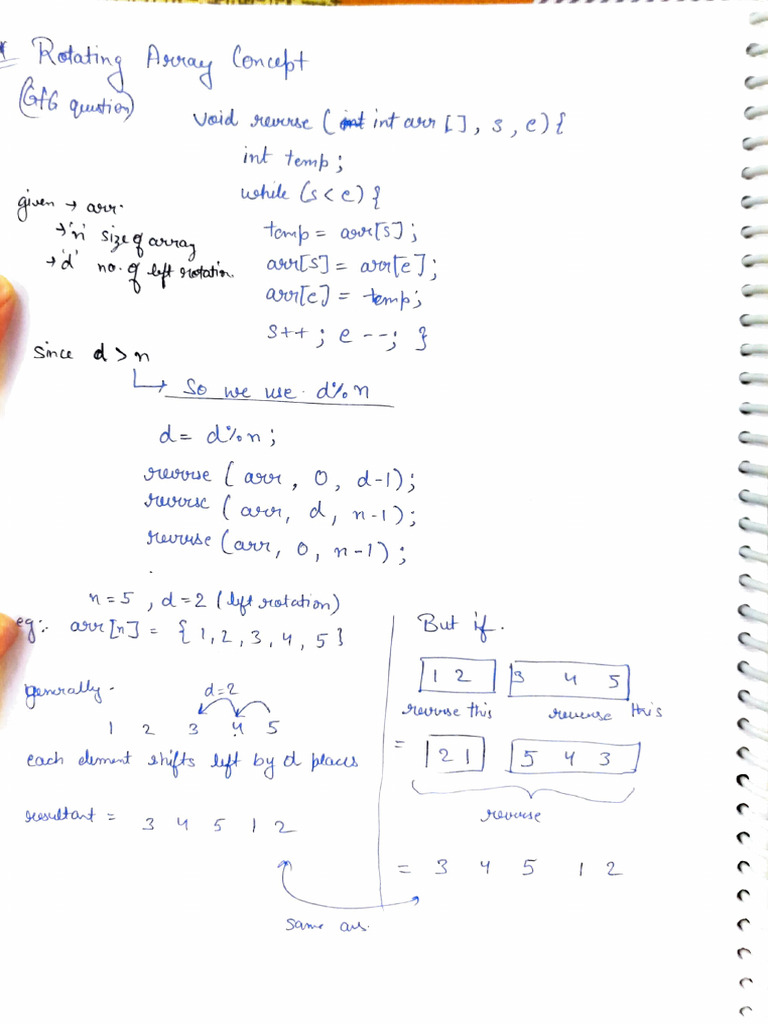 Rotating Array Concept
(GfG question)
void reverse (int arr [], s, e) {
int temp;
while (s < e) {
temp = arr[s];
arr[s] = arr[e];
arr[e] = temp;
s++ ; e --; }
given → arr.
→ 'n' size of array
→ 'd' no. of left rotation.
since d > n
So we use d%n
d = d%n;
reverse ( arr , 0, d-1);
reverse ( arr, d, n-1);
reverse (arr, 0, n-1);
n=5 , d=2 (left rotation)
eg:- arr[n] = { 1, 2, 3, 4, 5 }
generally -
d=2
1 2 3 4 5
each element shifts left by d places
resultant = 3 4 5 1 2
But if.
1 2 3 4 5
reverse this reverse this
= 2 1 5 4 3
reverse
= 3 4 5 1 2
same ans.